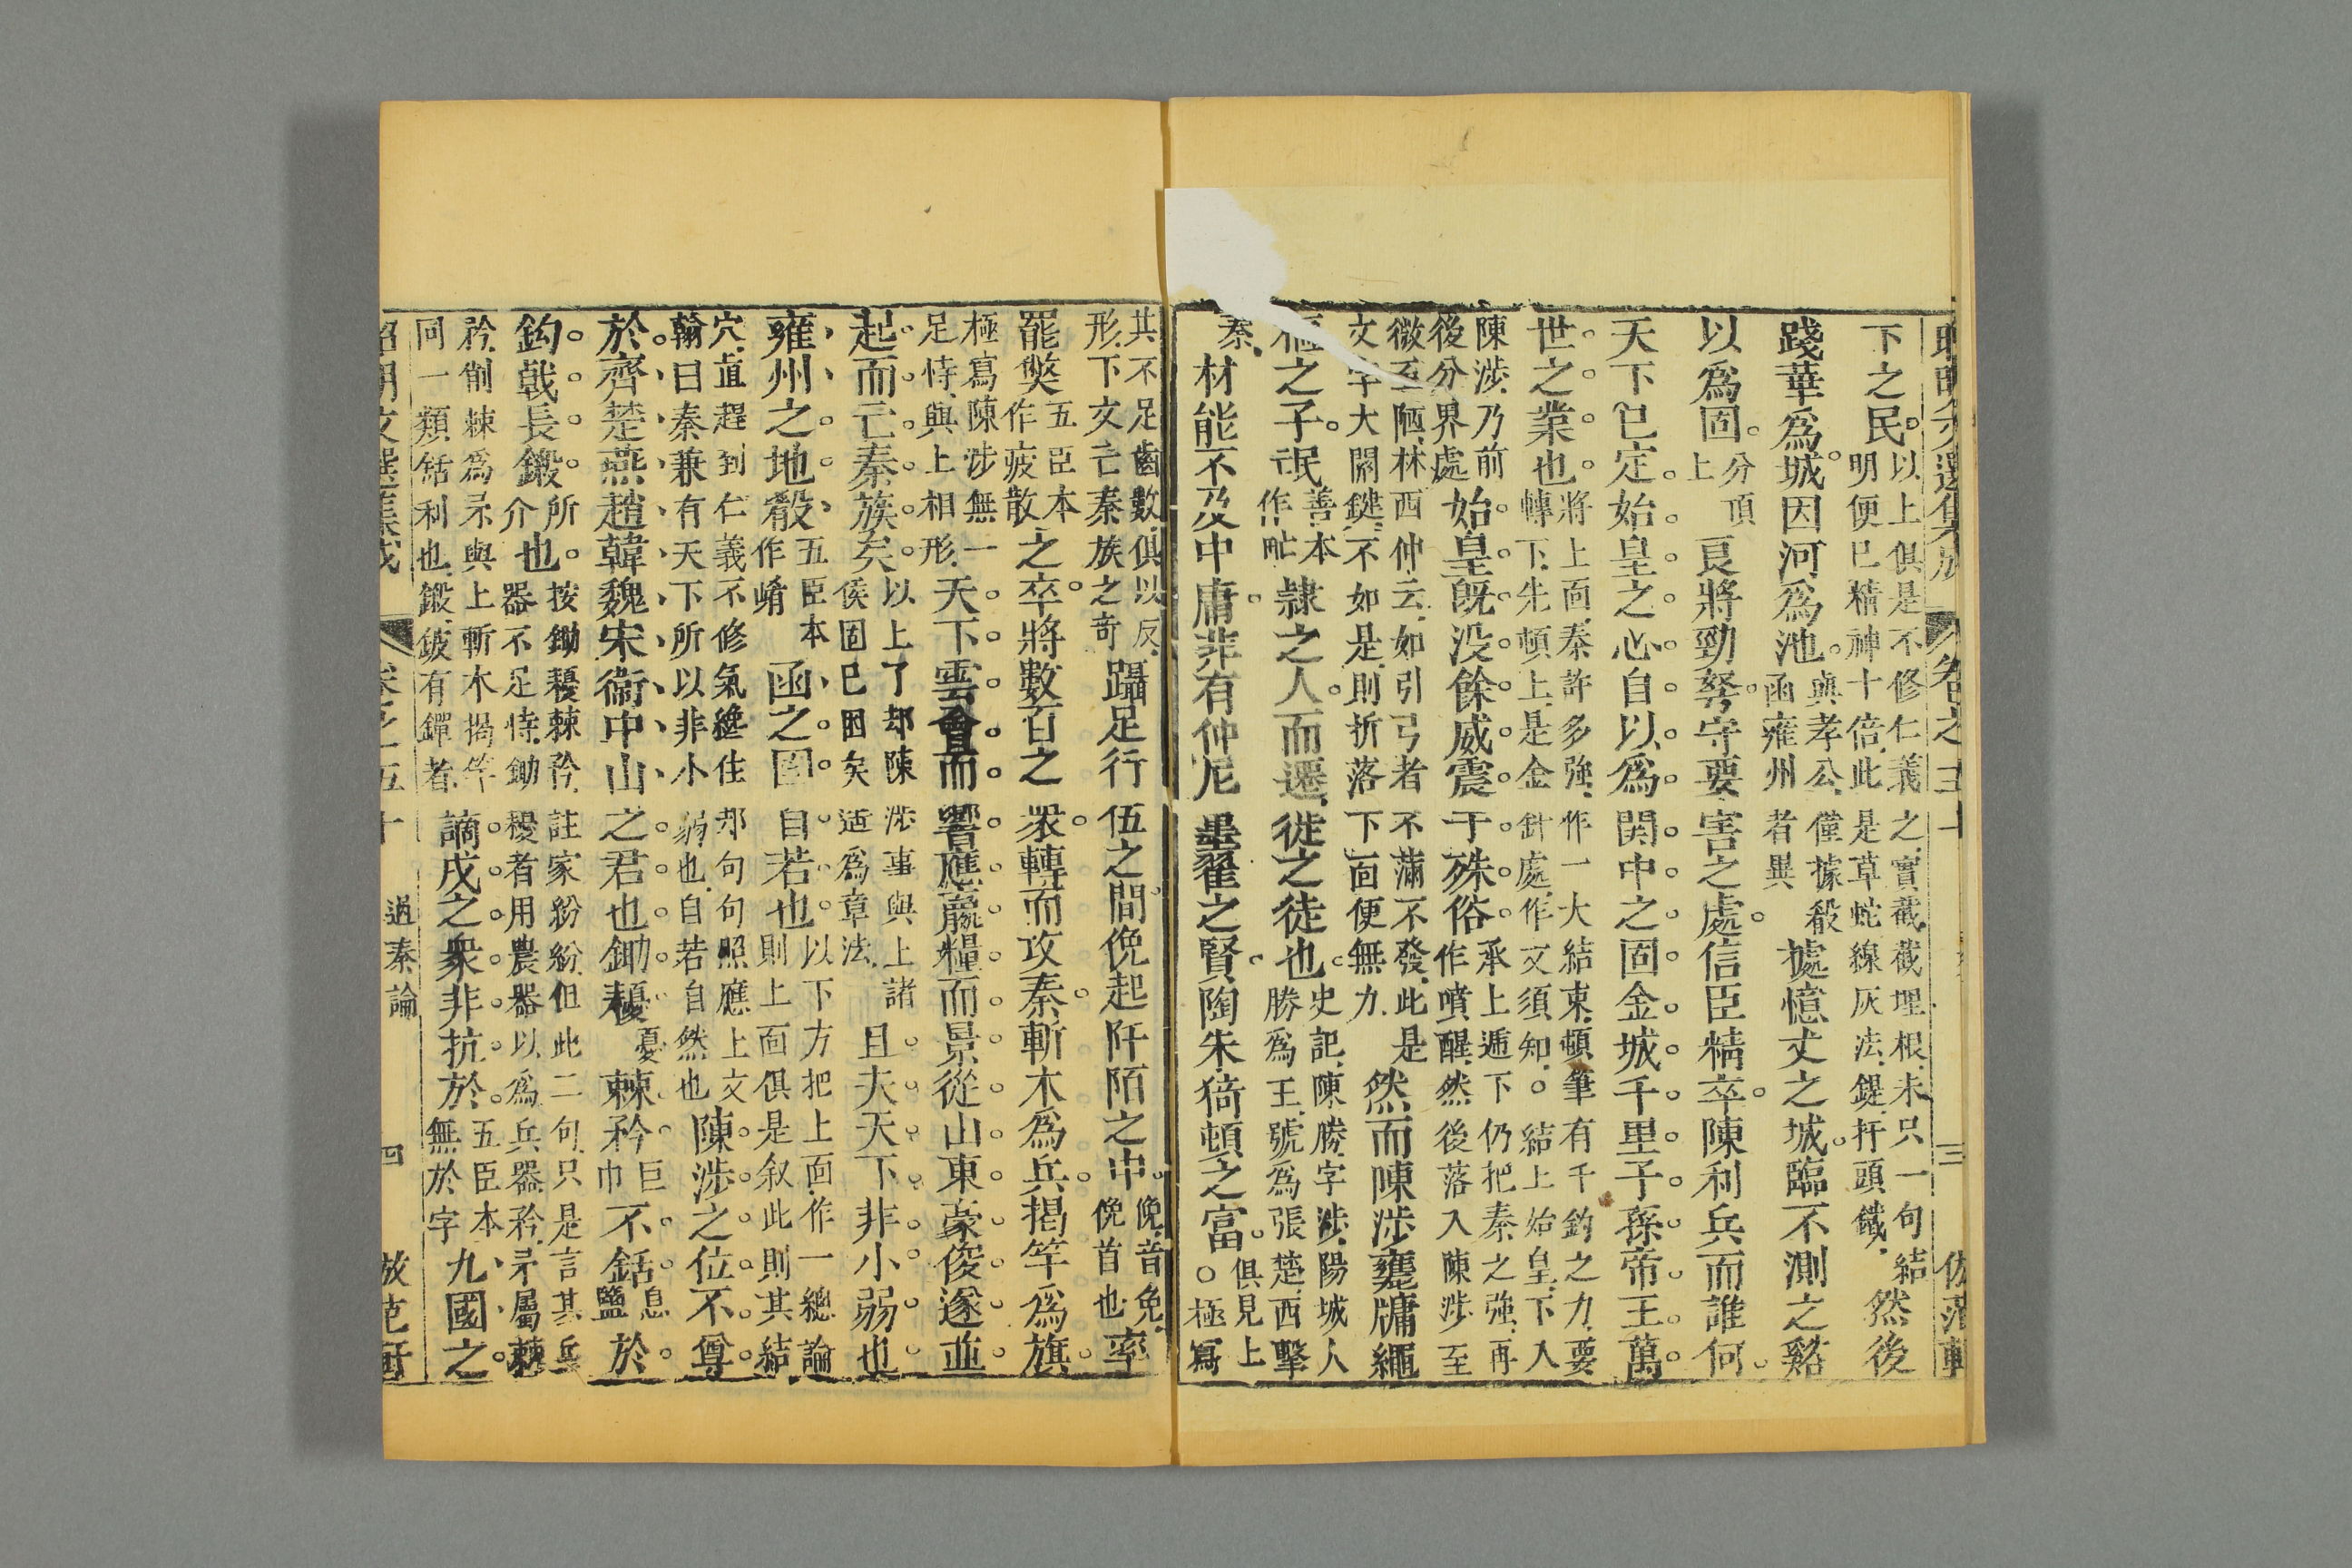 下之民以上俱是不修仁義之實截截埋根未只一句結明便已精神十倍此是草蛇線灰法鍟扞頭鐵然後
踐華爲城因河爲池與孝公僅據殽函雍州者異據億丈之城臨不測之谿
以爲固分頂上良將勁弩守要害之處信臣精卒陳利兵而誰何
天下已定始皇之心自以爲関中之固金城千里子孫帝王萬
世之業也將上面秦許多強作一大結束頓筆有千鈞之力要轉下先頓上是金針處作文須知○結上始皇下入
陳涉乃前後分界處始皇既没餘威震于殊俗承上遞下仍把秦之強再作噴醒然後落入陳涉至
微至陋林西仲云如引弓者不滿不發此是文字大關鍵不如是則折落下面便無力然而陳涉甕牖繩
樞之子氓善本作甿隷之人而遷徙之徒也史記陳勝字涉陽城人勝爲王號爲張楚西擊
秦材能不及中庸非有仲尼墨翟之賢陶朱猗頓之富○俱見上極寫
其不足齒數俱以反形下文亡秦族之奇躡足行伍之間俛起阡陌之中俛音免俛首也率
罷獘五臣本作疲散之卒將數百之衆轉而攻秦斬木爲兵揭竿爲旗
極寫陳涉無一足恃與上相形天下雲會而響應贏糧而景從山東豪俊遂並
起而亡秦族矣以上了却陳涉事與上諸侯固已困矣遥爲章法且夫天下非小弱也
雍州之地殽五臣本作崤函之固自若也以下方把上面作一總論則上面俱是叙此則其結
穴直趕到仁義不修氣纔住翰曰秦兼有天下所以非小弱也自若自然也那句句照應上文陳涉之位不尊
於齊楚燕趙韓魏宋衞中山之君也鋤耰憂棘矜巨巾不銛息鹽於
鈎戟長鎩所介也按鋤耰棘矜註家紛紛但此二句只是言其兵器不足恃鋤耰者用農器以爲兵器矜矛屬棘
矜削棘爲矛與上斬木揭竿同一類銛利也鎩鈹有鐔者謫戍之衆非抗於五臣本無於字九國之
昭明文選集成
卷之五十
過秦論
四
倣范軒